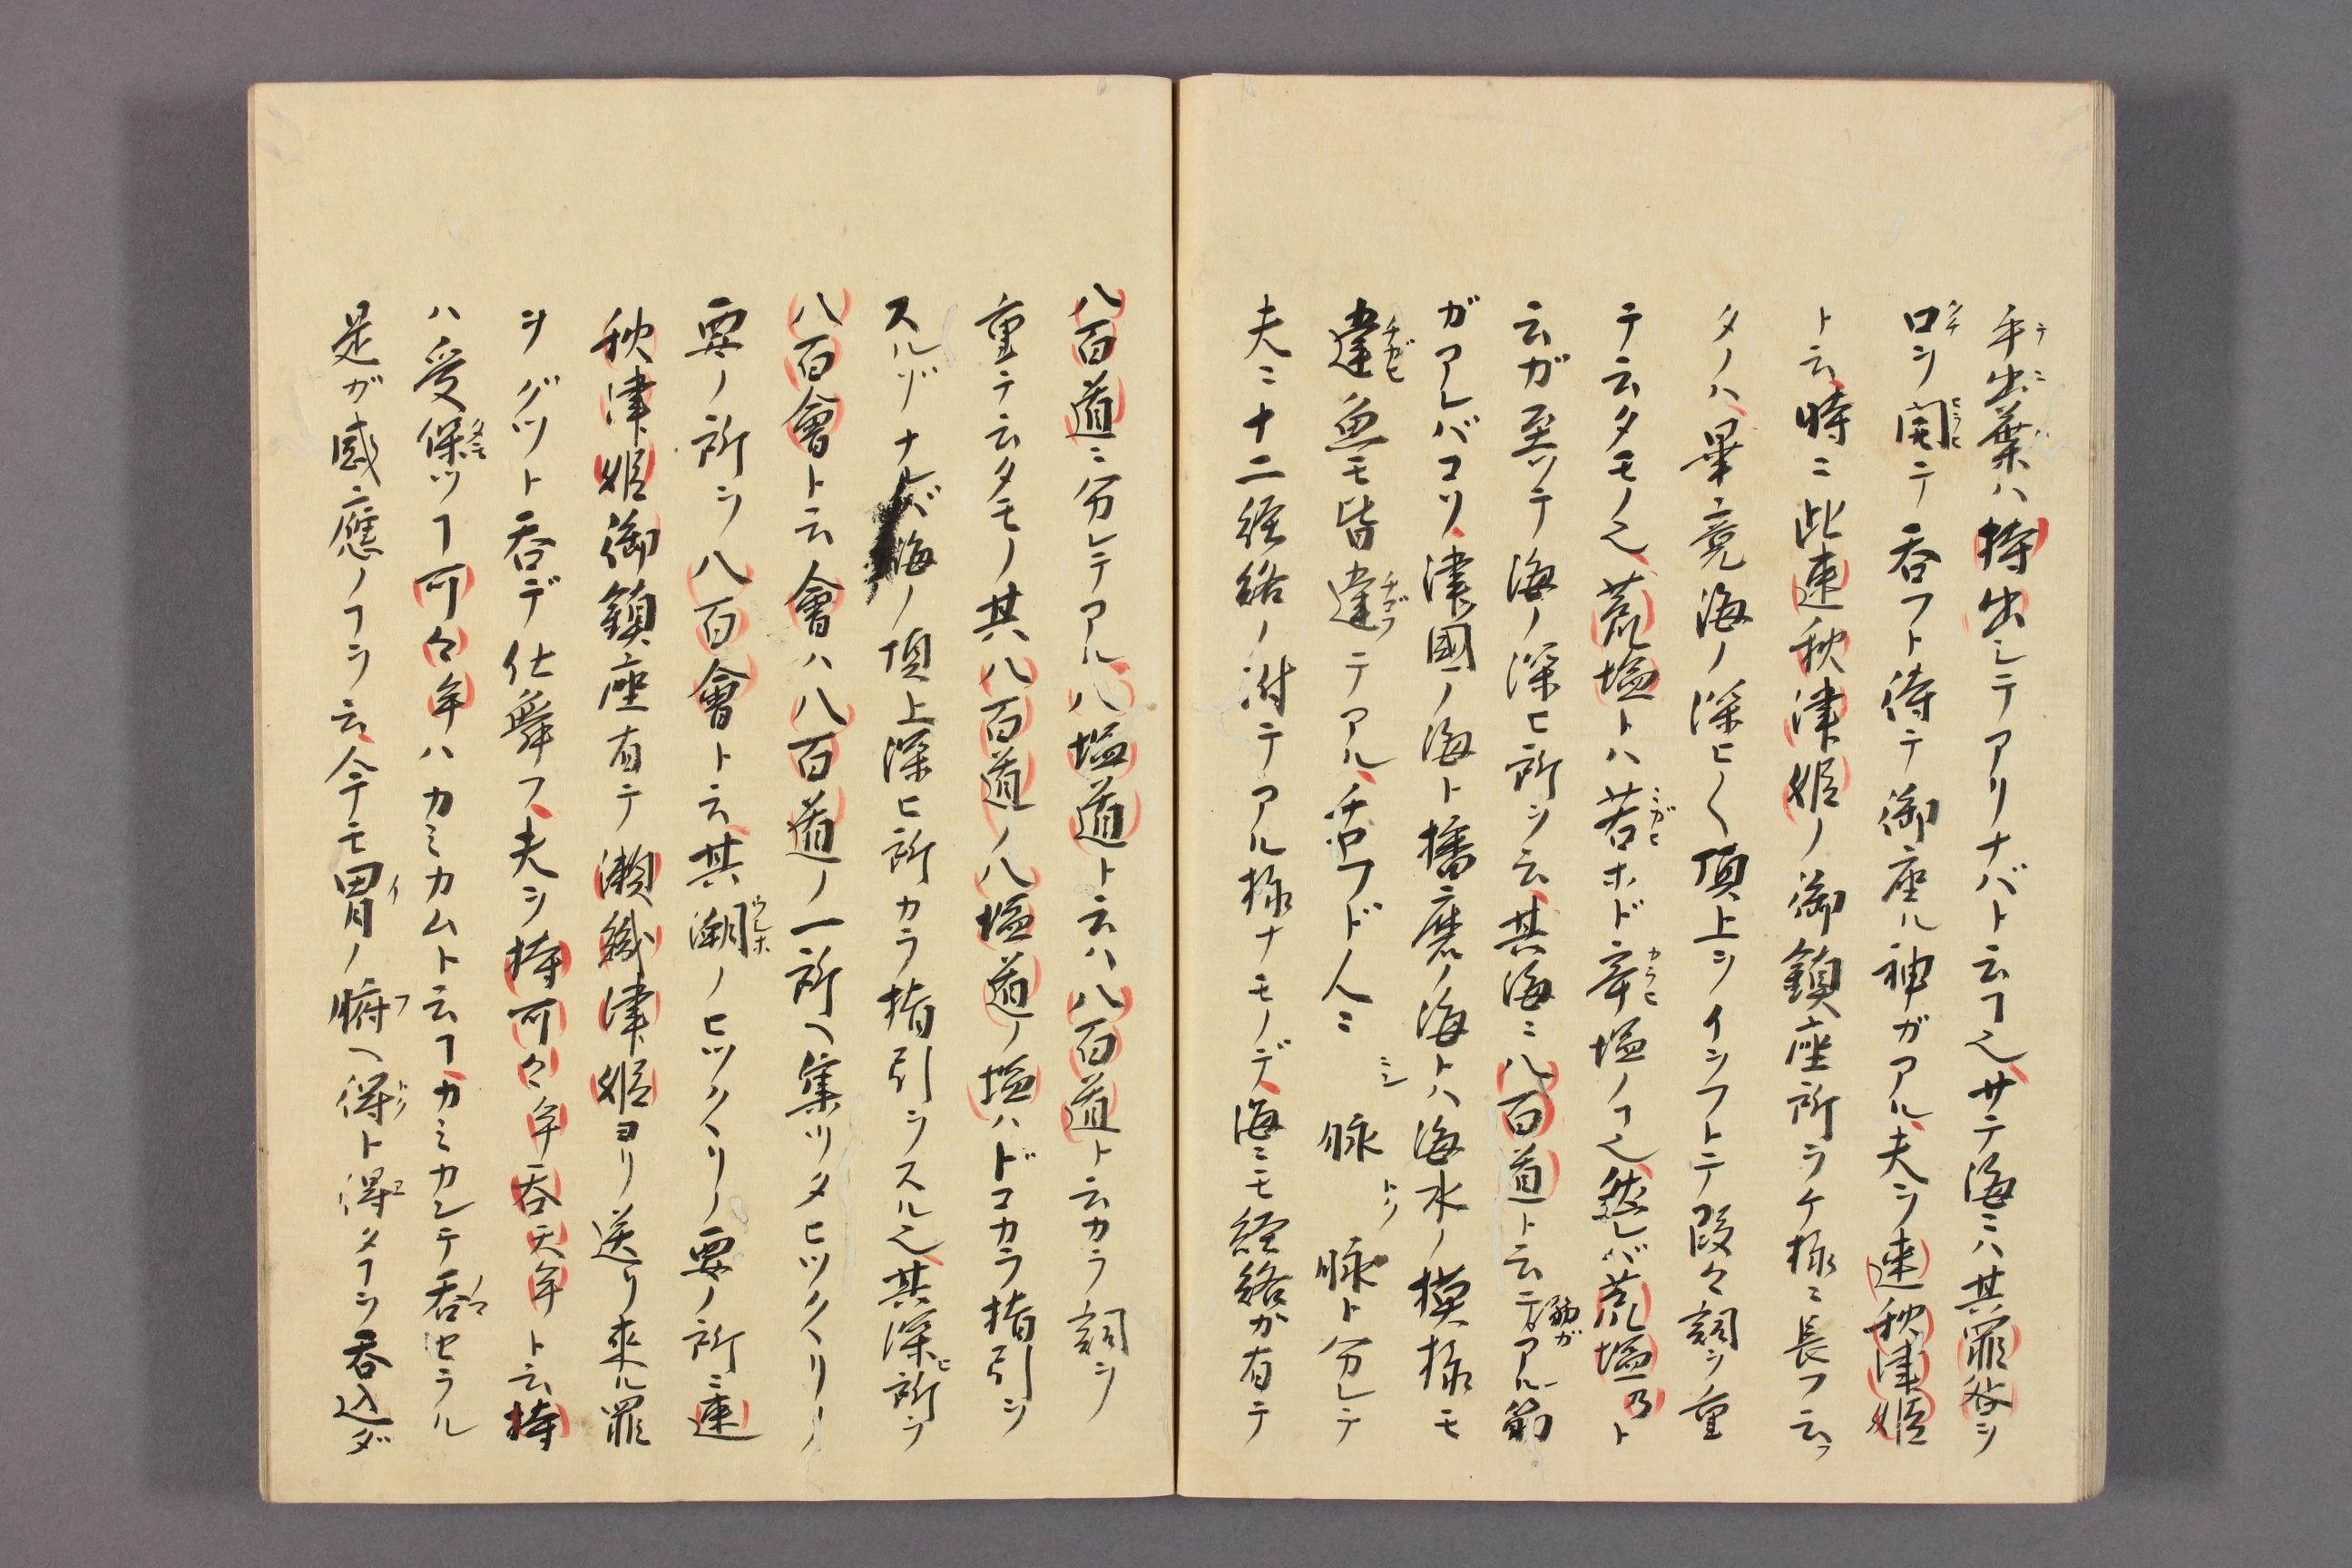 手出葉ハ持出シテアリナバト云ヿ也サテ海ニハ其罪咎ヲ
口ヲ開テ呑フト待テ御座ル神ガアル夫ヲ速秋津姫
ト云時ニ此速秋津姫ノ御鎮座所ラケ様ニ長フ云フ
タノハ畢竟海ノ深ヒ〱頂上ヲインフトテ段々詞ヲ重
テ云タモノ也荒塩トハ苦ホド辛塩ノヿ也然レバ荒塩乃ト
云ガ至ツテ海ノ深ヒ所ヲ云其海ニ八百道ト云テアル筋
ガアレバコソ津國ノ海ト播磨ノ海トハ海水ノ摸様モ
違魚モ皆違テアル チヤフド人ニ 脉 脉ト分レテ
夫ニ十二経絡ノ附テアル様ナモノデ海ニモ経絡が有テ
八百道ニ分レテアル八塩道ト云ハ八百道ト云カラ詞ヲ
重テ云タモノ其八百道ノ八塩道ノ塩ハドコカラ指引ヲ
スルゾナレバ海ノ頂上深ヒ所カラ指引ヲスル也其深ヒ所ヲ
八百會ト云會ハ八百道ノ一所ヘ集ツタヒツクヽリノ
要ノ所ヲ八百會ト云其潮ノヒツクヽリノ要ノ所ニ速
秋津姫御鎮座有テ瀬織津姫ヨリ送リ來ル罪
ヲグツト呑デ仕舞フ夫ヲ持可々牟呑天牟ト云持
ハ受保ツヿ可々牟ハカミカムト云ヿカミカシテ呑セラル
是ガ感應ノヿヲ云今テモ胃ノ腑ヘ得ト得タヿヲ呑込ダ